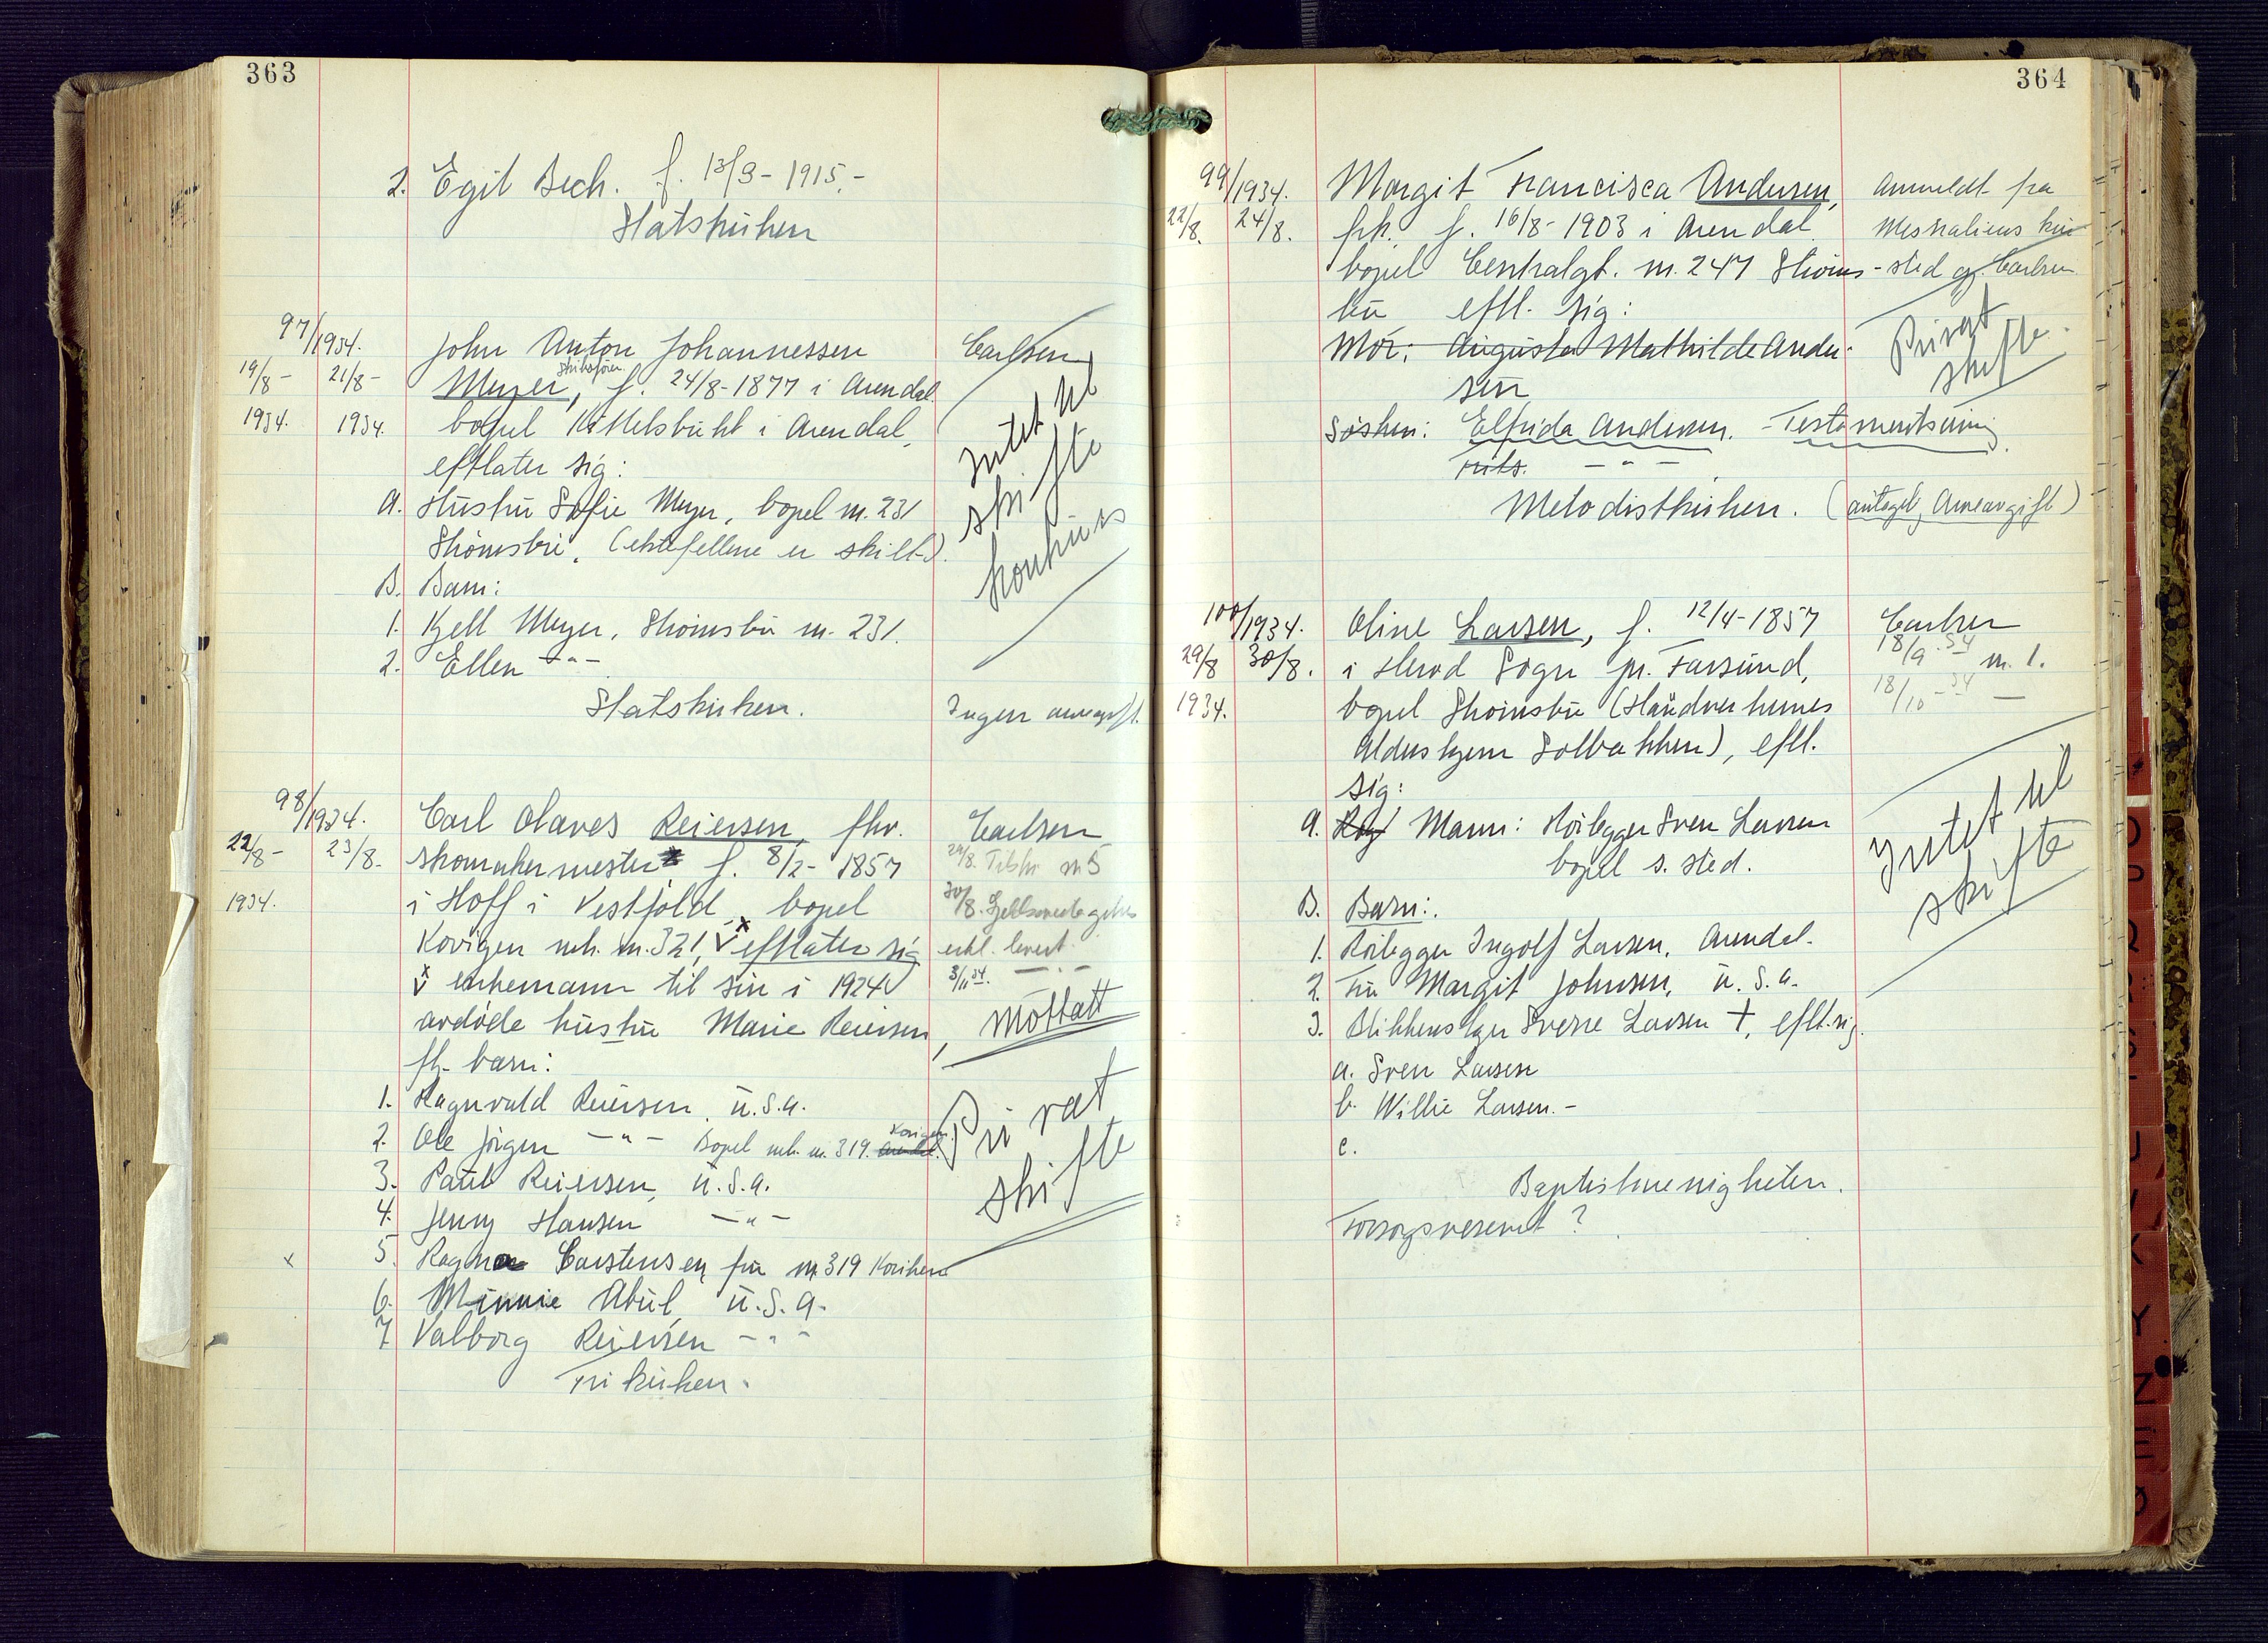 363
2. Egil Bech. f. 13/9-1915.-
Statskirken
97/1934. John Anton Johannessen Carlsen
19/8- 21/8- Meyer, skibsfører f. 24/8-1877 i Arendal.
1934. 1934. bopel Kittelsbukt i Arendal,
efterlater sig:
Intet til
skifte
konkurs
A. Hustru Sofie Meyer, bopel nr. 231
Strømsbu. (ektefellene er skilt).
B. Barn:
1. Kjell Meyer, Strømsbu nr. 231.
2. Ellen -"-
Statskirken. Ingen arveavgift.
98/1934. Carl Olaves Reiersen, fhv. Carlsen
22/8- 23/8. skomakermester f. 8/2-1857
29/8. nr 5
1934. i Hoff i Vestfold, bopel
30/8.
Kovigen nr. 321, v x efterlater sig
erkl. levert.
x v enkemann til sin i 1924
3/11 34. -"-
avdøde hustru Marie Reiersen, Mottatt
flg. barn:
1. Ragnvald Reiersen, U.S.A.
2. Ole Jørgen -"- Bopel nr. 319. Arendal. Kovigen
Privat
skifte
3. Paul Reiersen, U.S.A.
4. Jenny Hansen -"-
x 5. Ragna Carstensen, fru nr 319 Koviken
6. Minnie Abul, U.S.A.
7. Valborg Reiersen -"-
Frikirken.
364
99/1934. Margit Francisca Andersen, Anmeldt fra
22/8. 24/8. frk. f. 16/8-1903 i Arendal.
bopel Centralgt. nr. 247 Strøms- sted og Carlsen
bu eftl. sig:
Mor: Augusta Mathilde Ander-
sen
Privat
skifte.
Søsken: Elfrida Andersen. Testamentsarving.
-"-
Metodistkirken. (antagel. Arveavgift)
100/1934. Oline Larsen, f. 12/4-1857 Carlsen
18/9 34 nr. 1.
29/8 30/8. i Herod Sogn pr. Farsund,
18/10-34 —
1934. bopel Strømsbu (Håndverkernes
Aldershjem Solbakken), eftl.
sig:
Intet til
skifte
A. Mann: Rørlegger Sven Larsen
bopel s. sted.
B. Barn:
1. Rørlegger Ingolf Larsen, Arendal.
2. Fru Margit Johnsen, U.S.A.
3. Blikkenslager Sverre Larsen +, eftl. sig.
a. Sven Larsen
b. Willie Larsen.-
c.
Baptistmenigheten.
Forsorgsvesenet?